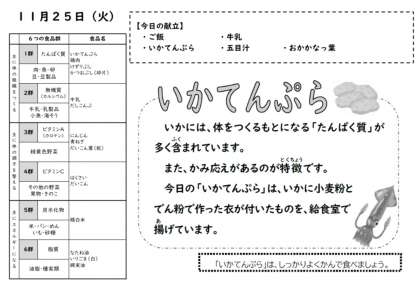 11月25日（火）
【今日の献立】
・ご飯　・牛乳
・いかてんぷら　・五目汁　・おかかなっ葉
６つの食品群　食品名
主に体の組織をつくる
1群　たんぱく質
肉・魚・卵
豆・豆製品
いかてんぷら
鶏肉
けずりぶし
2群　無機質
（カルシウム）
牛乳・乳製品
小魚・海そう
牛乳
だしこんぶ
3群　ビタミンA
（カロテン）
緑黄色野菜
にんじん
青ねぎ
だいこん葉
4群　ビタミンC
その他の野菜
果物・きのこ
はくさい
だいこん
5群　炭水化物
米・パン・めん
いも・砂糖
精白米
6群　脂質
油脂・種実類
なたね油
いりごま（白）
綿実油
いかてんぷら
いかには、体をつくるもとになる「たんぱく質」が
多く含まれています。
ふく
また、かみ応えがあるのが特徴です。
とくちょう
今日の「いかてんぷら」は、いかに小麦粉と
でん粉で作った衣が付いたものを、給食室で
揚げています。
あ
「いかてんぷら」は、しっかりよくかんで食べましょう。